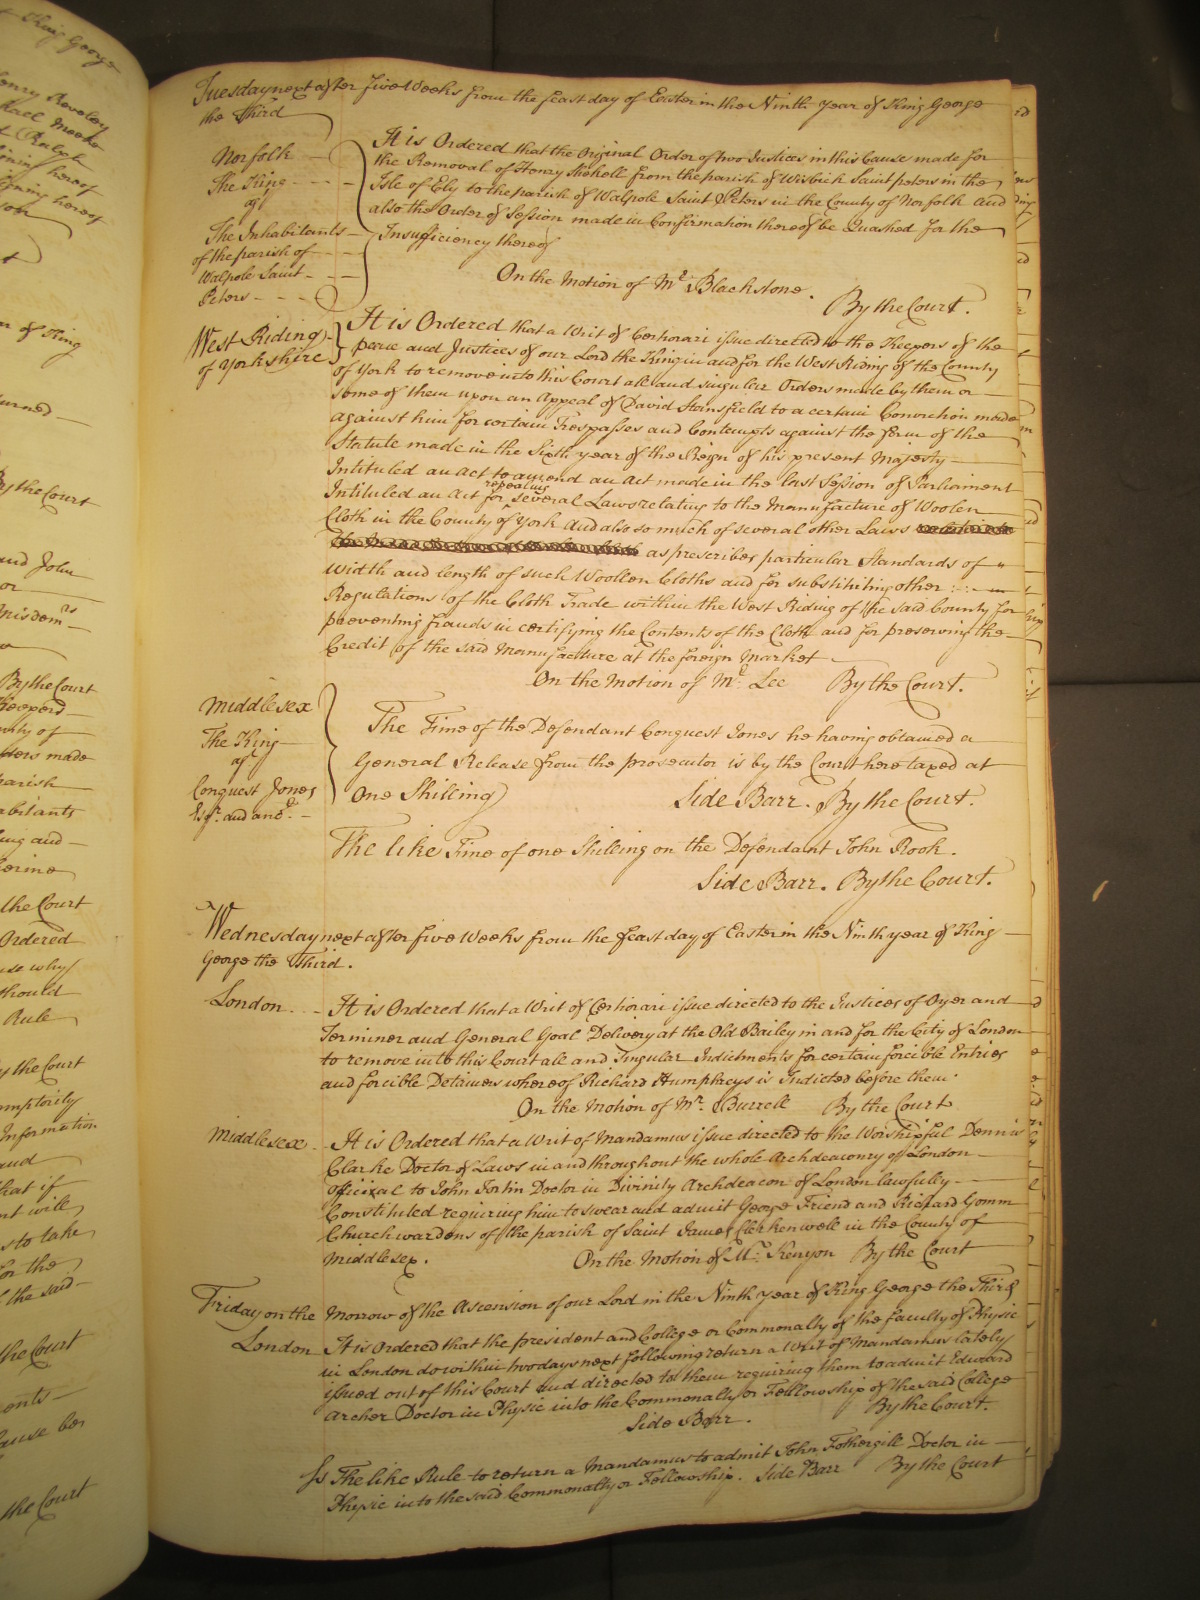 Tuesday next after five Weeks from the feast day of Easter in the Ninth year of King George
the Third
Norfolk
The King
agt
The Inhabitants
of the parish of
Walpole Saint
Peters
It is Ordered that the Original Order of two Justices in this Cause made for
the Removal of Henry from the parish of Wisbich Saint peters in the
Isle of Ely to the parish of Walpole Saint Peters in the County of Norfolk and
also the Order of Session made in Confirmation thereof be Quashed for the
Insufficiency thereof
On the Motion of Mr. Blackstone.
By the Court.
West Riding
of Yorkshire
It is Ordered that a Writ of Certiorari issue directed to the Keepers of the
peace and Justices of our Lord the King in and for the West Riding of the County
of York to remove into this Court all and singular Orders made by them or
some of them upon an Appeal of David Stansfield to a certain Conviction made
against him for certain Trespasses and Contempts against the form of the
Statute made in the Sixth year of the Reign of his present Majesty
Intituled an Act to amend an Act made in the last Session of Parliament
Intituled an Act for repealing several Laws relating to the Manufacture of Woolen
Cloth in the County of York And also so much of several other Laws
as prescribes particular Standards of
width and length of such Woollen Cloths and for substituting other
Regulations of the Cloth Trade within the West Riding of the said County for
preventing frauds in certifying the Contents of the Cloth and for preserving the
Credit of the said Manufacture at the foreign Market
On the Motion of Mr. Lee By the Court.
Middlesex
The King
agt
Conquest Jones
Esqr. and anor.
The Fine of the Defendant Conquest Jones he having obtained a
General Release from the prosecutor is by the Court here taxed at
One Shilling
Side Barr. By the Court.
The like Fine of one Shilling on the Defendant John Rook.
Side Barr. By the Court.
Wednesday next after five Weeks from the feast day of Easter in the Ninth year of King
George the Third.
London It is Ordered that a Writ of Certiorari issue directed to the Justices of Oyer and
Terminer and General Goal Delivery at the Old Bailey in and for the City of London
to remove into this Court all and Singular Indictments for certain forcible Entries
and forcible Detainers whereof Richard Humphreys is Indicted before them.
On the Motion of Mr. Burrell By the Court
Middlesex It is Ordered that a Writ of Mandamus issue directed to the Worshipful Dennis
Clarke Doctor of Laws in and throughout the whole Archdeaconry of London
official to John Jortin Doctor in Divinity Archdeacon of London lawfully
Constituted requiring him to swear and admit George Friend and Richard Gomm
Churchwardens of the parish of Saint James Clerkenwell in the County of
Middlesex. On the Motion of Mr. Kenyon By the Court
Friday on the Morrow of the Ascension of our Lord in the Ninth year of King George the Third
London It is Ordered that the president and College or Commonalty of the faculty of Physic
in London do within two days next following return a Writ of Mandamus lately
issued out of this Court and directed to them requiring them to admit Edward
Archer Doctor in Physic into the Commonalty or Fellowship of the said College
Side Barr. By the Court.
Ss The like Rule to return a Mandamus to admit John Fothergill Doctor in
Physic into the said Commonalty or Fellowship. Side Barr By the Court